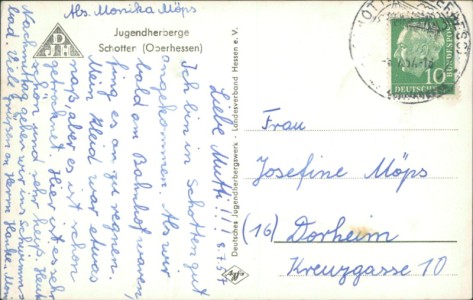 Abs. Monika Möps
DJH
Jugendherberge
Schotten (Oberhessen)
8.7.57
Liebe Mutti!!!
Ich bin in Schotten gut
angekommen. Als wir
bald am Bahnhof waren,
fing es an zu regnen.
Mein Kleid war etwas
naß, aber es ist schon
getrocknet. Hier ist es sehr
schön und sehr heiß. Heute
Nachmittag gehen wir ins Schwimm-
bad. Viele Grüße an Herrn
Deutsches Jugendherbergswerk - Landesverband Hessen e. V.
SCHOTTEN
10
DEUTSCHE
BUNDESPOST
Frau
Josefine Möps
(16) Dorheim
Kreuzgasse 10